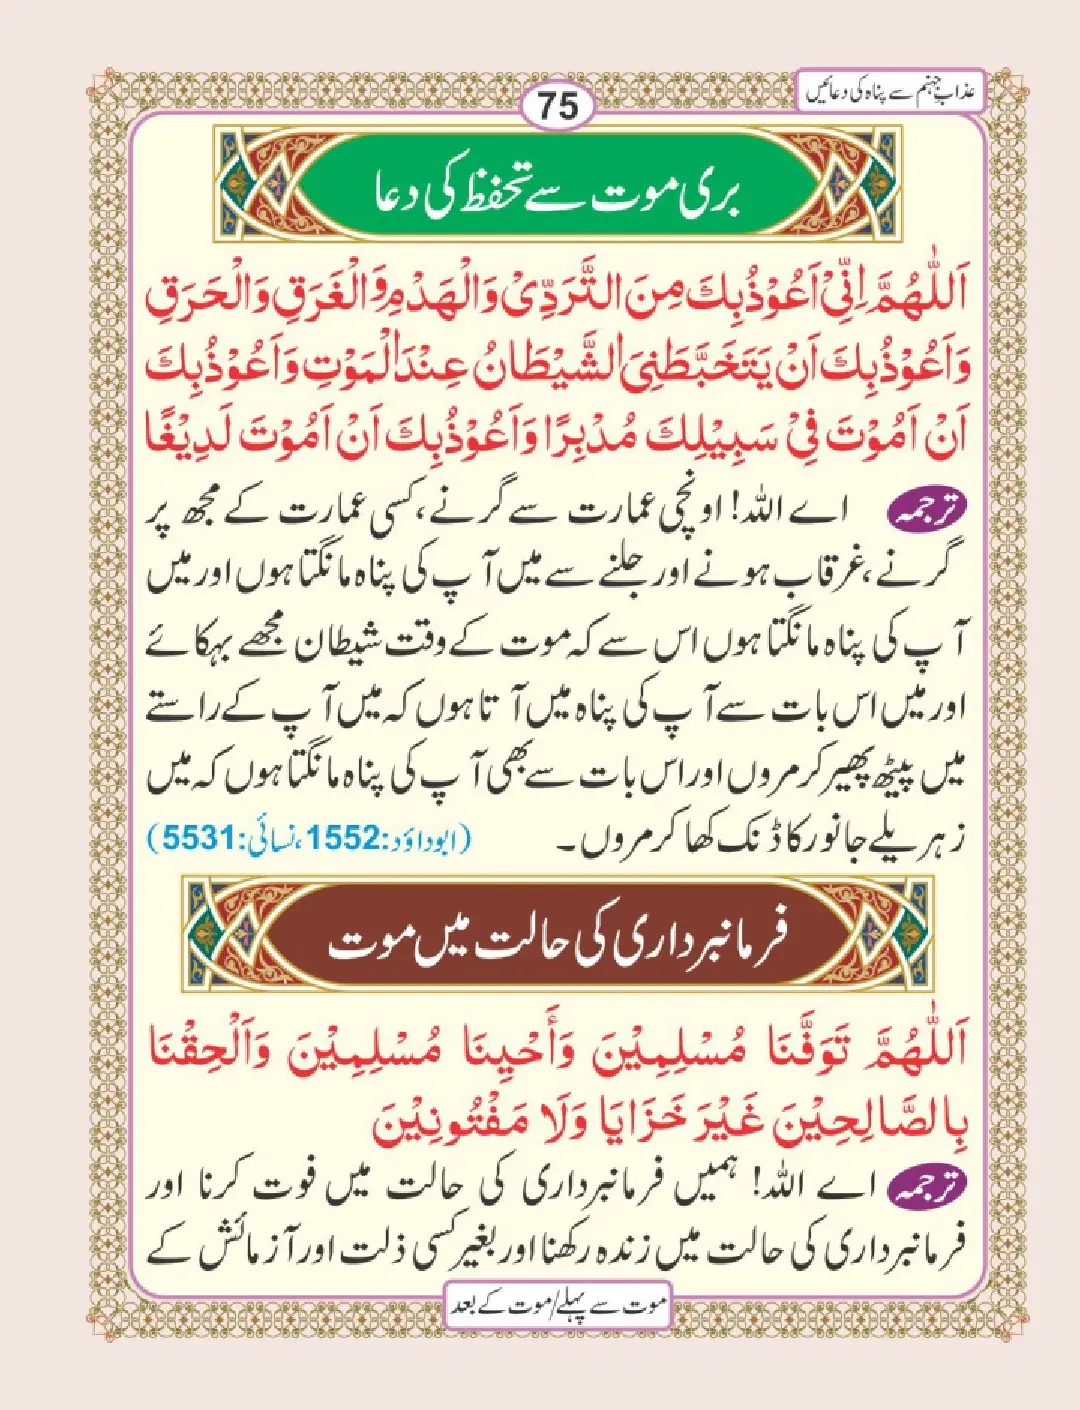 عذابِ جہنم سے پناہ کی دعائیں
75
بری موت سے تحفظ کی دعا
اَللّٰهُمَّ اِنِّیْ اَعُوْذُبِكَ مِنَ التَّرَدِّیْ وَالْهَدْمِ وَالْغَرَقِ وَالْحَرَقِ
وَاَعُوْذُبِكَ اَنْ یَتَخَبَّطَنِیَ الشَّیْطَانُ عِنْدَالْمَوْتِ وَاَعُوْذُبِكَ
اَنْ اَمُوْتَ فِیْ سَبِیْلِكَ مُدْبِرًا وَاَعُوْذُبِكَ اَنْ اَمُوْتَ لَدِیْغًا
ترجمہ اے اللہ! اونچی عمارت سے گرنے، کسی عمارت کے مجھ پر
گرنے، غرقاب ہونے اور جلنے سے میں آپ کی پناہ مانگتا ہوں اور میں
آپ کی پناہ مانگتا ہوں اس سے کہ موت کے وقت شیطان مجھے بہکائے
اور میں اس بات سے آپ کی پناہ میں آتا ہوں کہ میں آپ کے راستے
میں پیٹھ پھیر کر مروں اور اس بات سے بھی آپ کی پناہ مانگتا ہوں کہ میں
زہریلے جانور کا ڈنک کھا کر مروں۔ (ابوداؤد:1552، نسائی:5531)
فرمانبرداری کی حالت میں موت
اَللّٰهُمَّ تَوَفَّنَا مُسْلِمِیْنَ وَأَحْیِنَا مُسْلِمِیْنَ وَاَلْحِقْنَا
بِالصَّالِحِیْنَ غَیْرَ خَزَایَا وَلَا مَفْتُونِیْنَ
ترجمہ اے اللہ! ہمیں فرمانبرداری کی حالت میں فوت کرنا اور
فرمانبرداری کی حالت میں زندہ رکھنا اور بغیر کسی ذلت اور آزمائش کے
موت سے پہلے/موت کے بعد